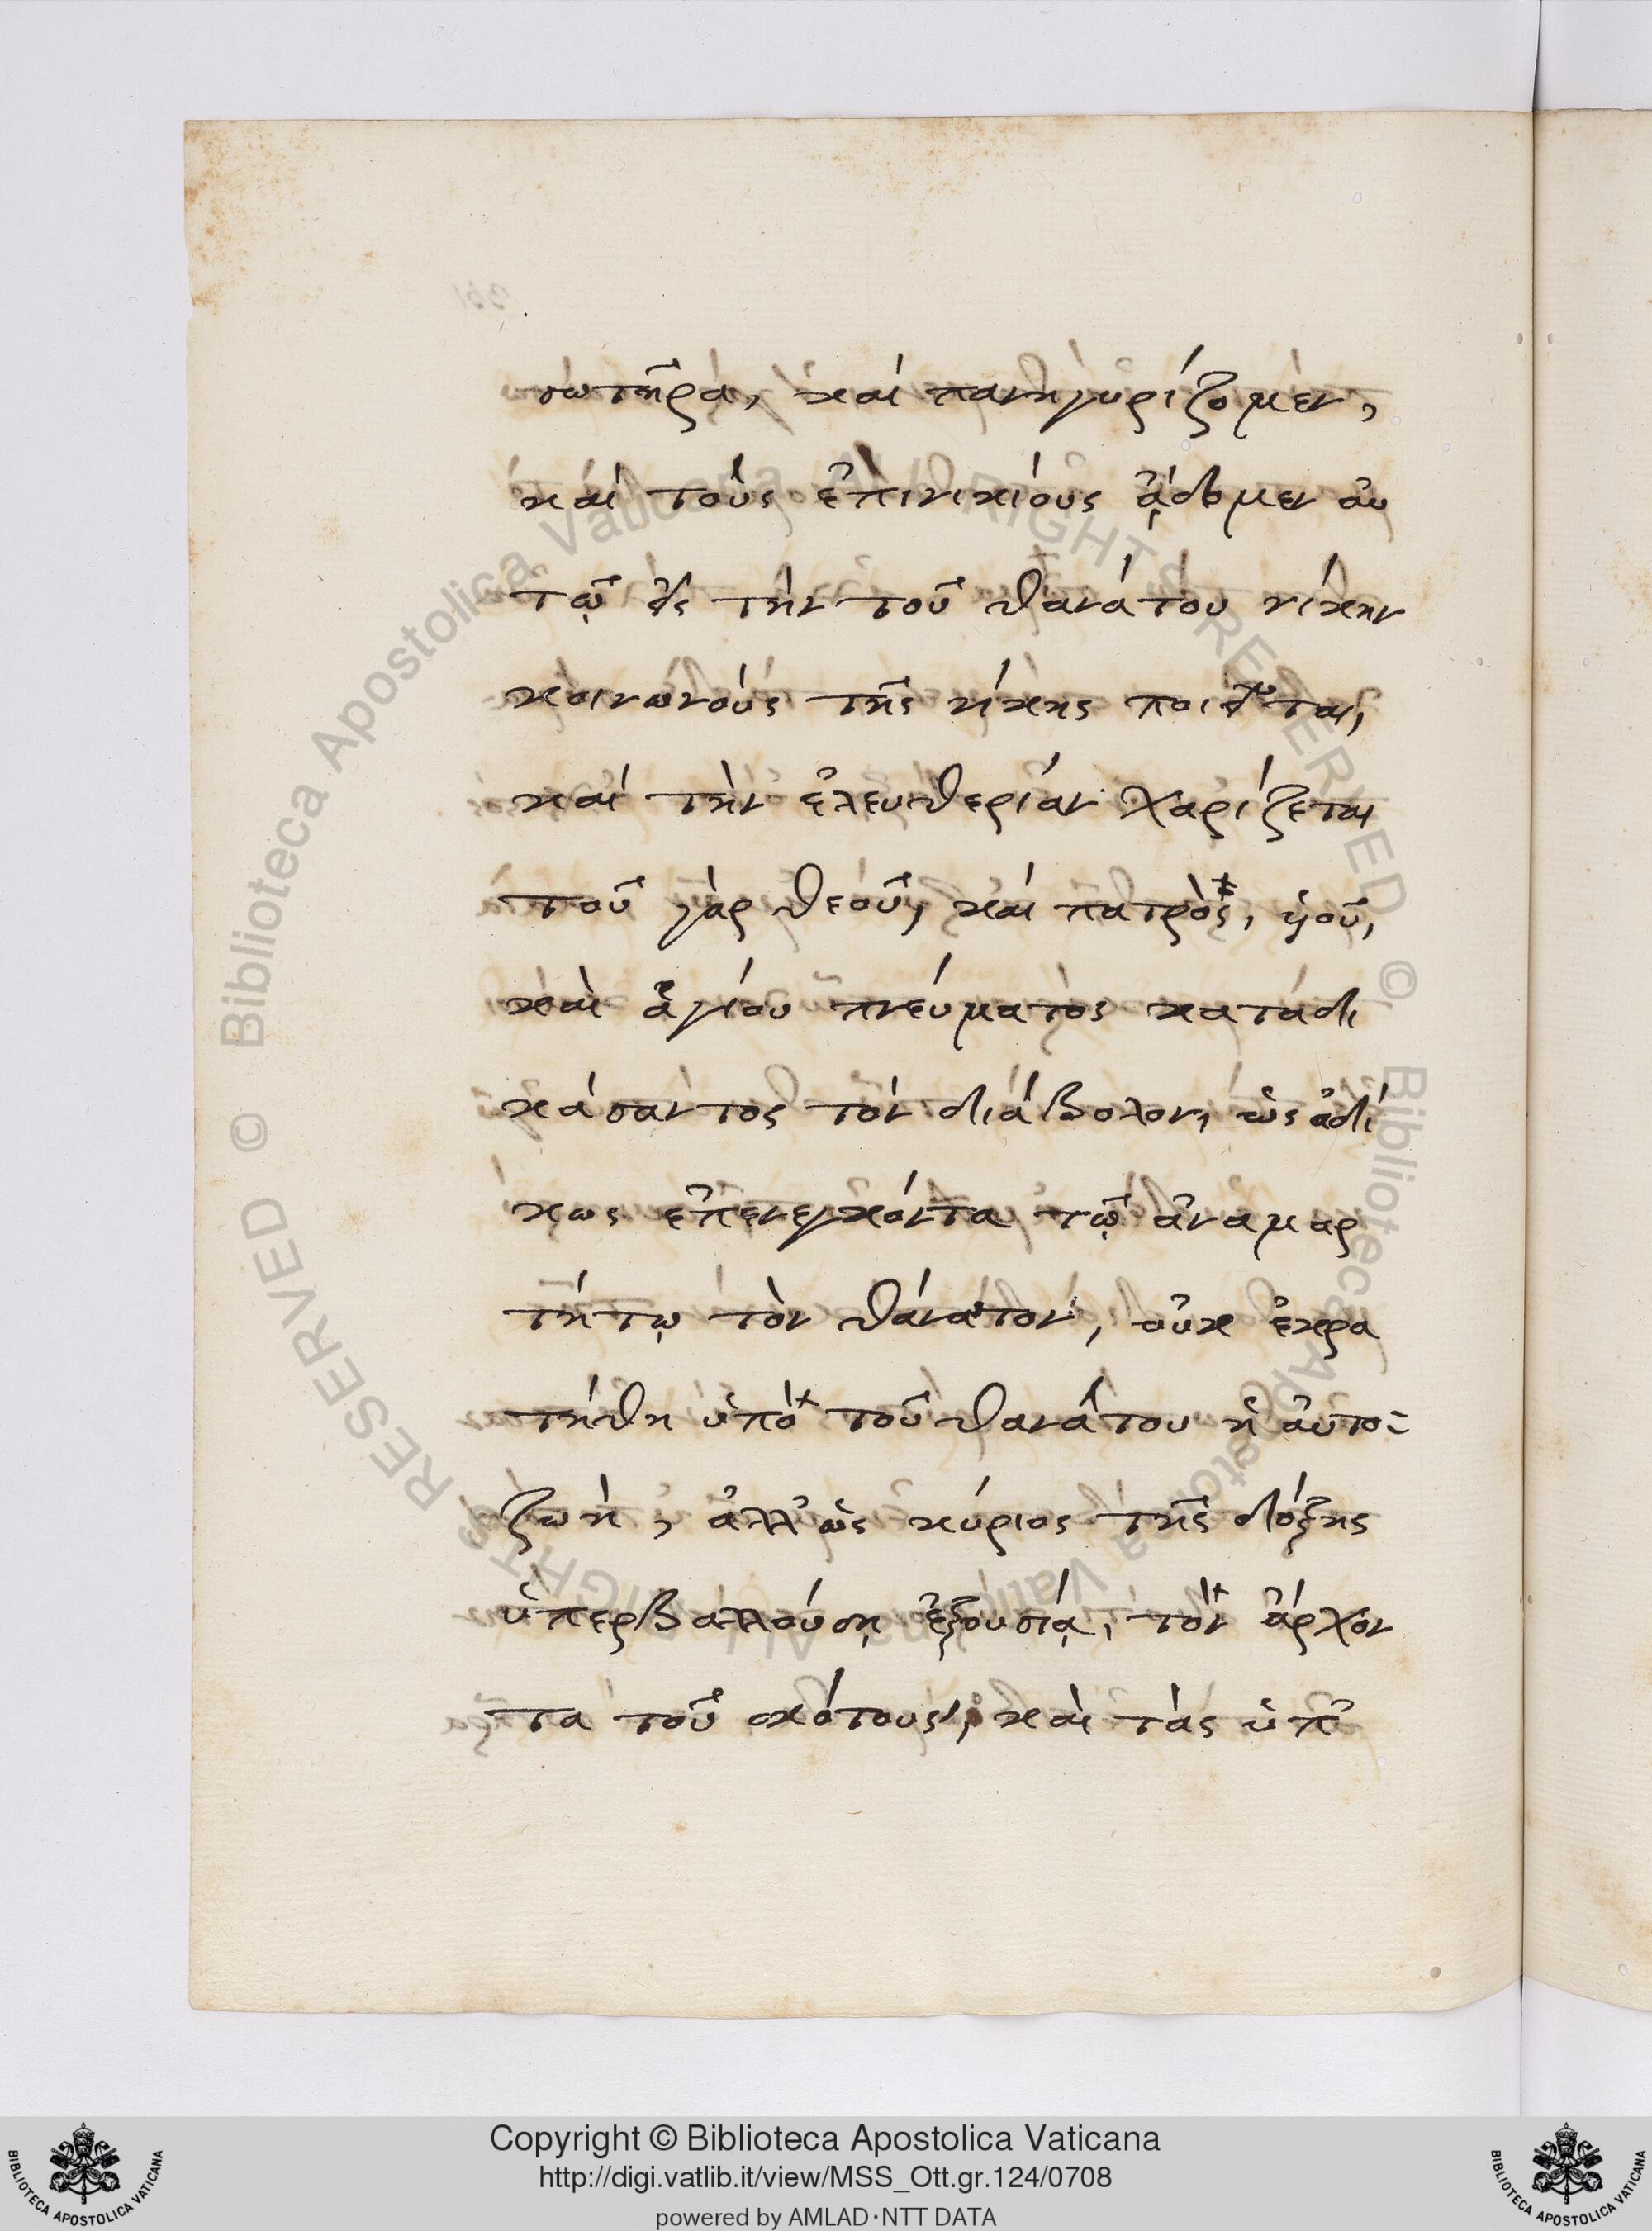 σωτῆρα, καὶ πανηγυρίζομεν,
καὶ τοὺς ἐπινικίους ᾄδομεν αὐ
τῷ εἰς τὴν τοῦ θανάτου νίκην
κοινωνοὺς τῆς νίκης ποιεῖται,
καὶ τὴν ἐλευθερίαν χαρίζεται
τοῦ γὰρ θεοῦ, καὶ πατρὸς, ὑιοῦ,
καὶ ἁγίου πνεύματος καταδι
κάσαντος τὸν διάβολον, ὡς ἀδί
κως ἐπενεγκόντα τῷ ἀναμαρ
τήτῳ τὸν θάνατον, οὐκ ἐκρα
τήθη ὑπὸ τοῦ θανάτου ἡ αὐτο-
ζωὴ, ἀλλ' ὡς κύριος τῆς δόξης
ὑπερβαλλούσῃ ἐξουσίᾳ, τὸν ἄρχον
τα τοῦ σκότους, καὶ τὰς ὑπ'
Biblioteca Apostolica Vaticana ALL RIGHTS RESERVED ©
Biblioteca Apostolica Vaticana ALL RIGHTS RESERVED ©
Copyright © Biblioteca Apostolica Vaticana
http://digi.vatlib.it/view/MSS_Ott.gr.124/0708
powered by AMLAD·NTT DATA
BIBLIOTECA APOSTOLICA VATICANA
BIBLIOTECA APOSTOLICA VATICANA